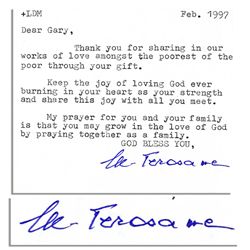 +LDM Feb. 1997
Dear Gary,
Thank you for sharing in our
works of love amongst the poorest of the
poor through your gift.
Keep the joy of loving God ever
burning in your heart as your strength
and share this joy with all you meet.
My prayer for you and your family
is that you may grow in the love of God
by praying together as a family.
GOD BLESS YOU,
lee Teresa mc
lee Teresa mc